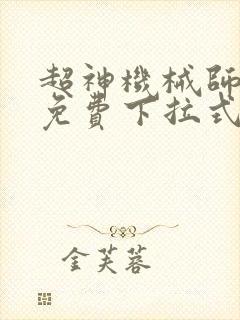 超神機械師
免費下拉式
金芙蓉